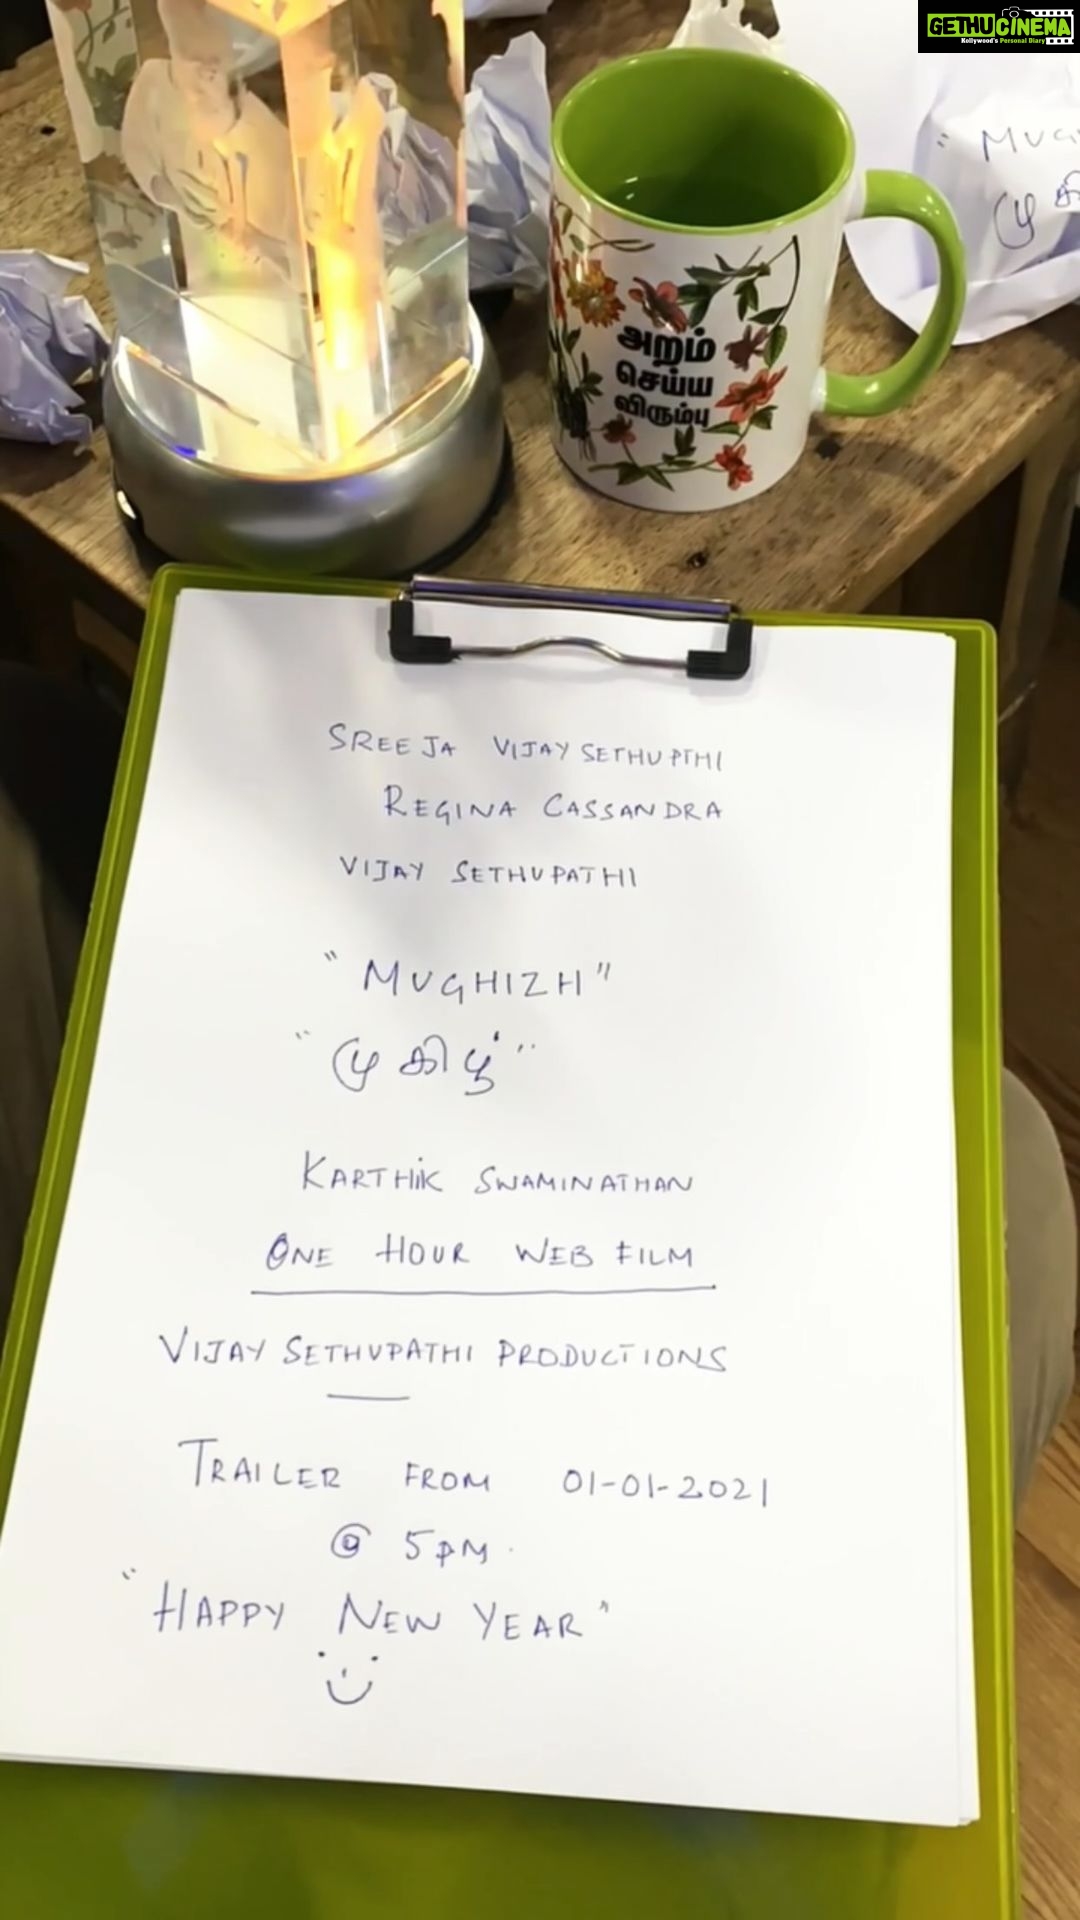 GETHU CINEMA
Kollywood's Personal Diary
" MUG
மு கி
அறம்
செய்ய
விரும்பு
SREEJA VIJAY SETHUPTHI
REGINA CASSANDRA
VIJAY SETHUPATHI
" MUGHIZH "
" முகிழ் "
KARTHIK SWAMINATHAN
ONE HOUR WEB FILM
VIJAY SETHUPATHI PRODUCTIONS
TRAILER FROM 01-01-2021
@ 5PM.
" HAPPY NEW YEAR "